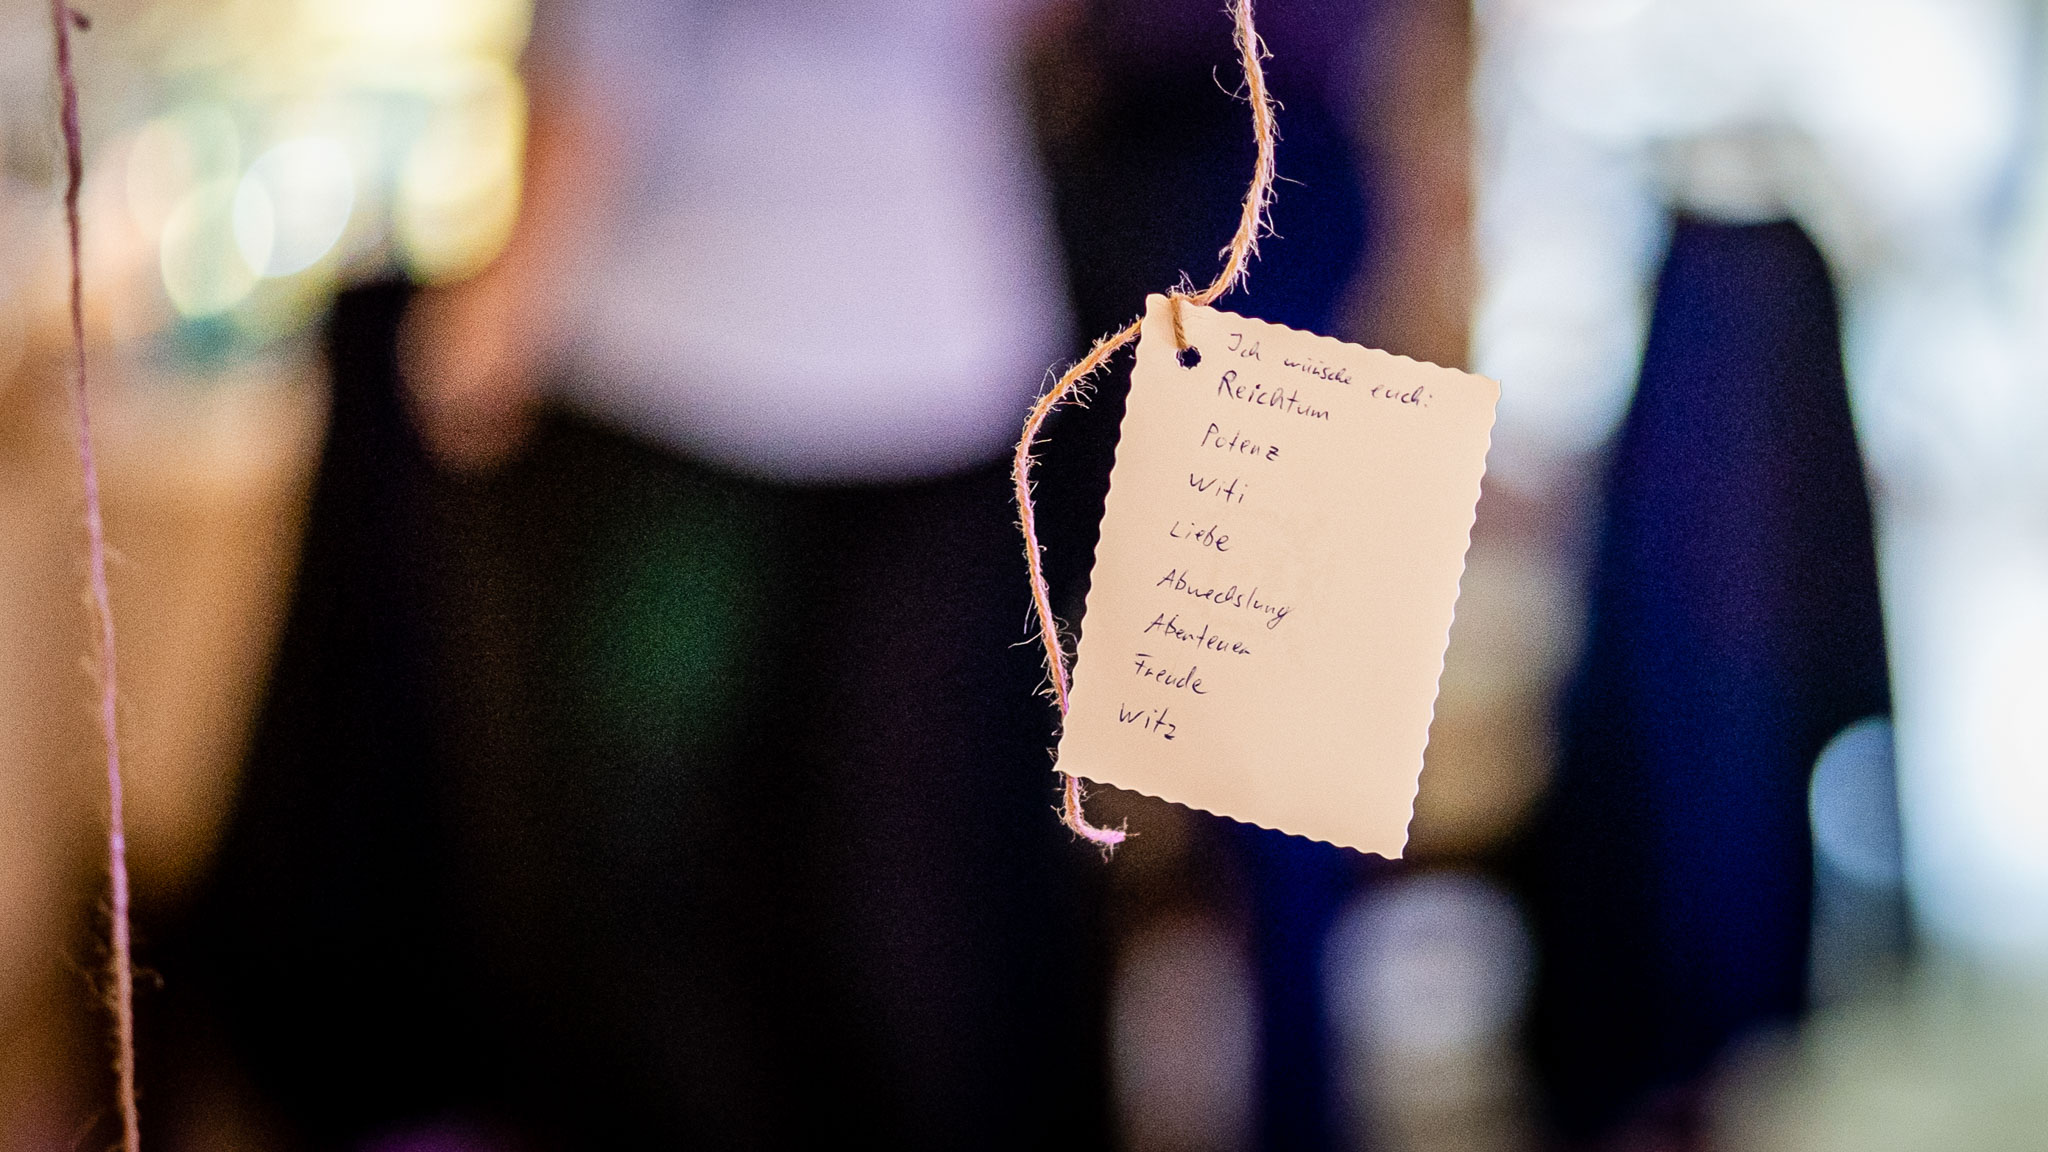 Ich wünsche euch:
Reichtum
Potenz
Witi
Liebe
Abwechslung
Abenteuer
Freude
Witz